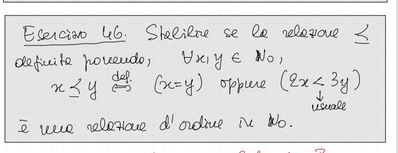 Esercizio 46. Stabilire se la relazione ≤
definita ponendo, ∀x,y ∈ ℕ₀,
x ≤ y ⟺def. (x=y) oppure (2x < 3y)
↓
usuale
è una relazione d'ordine in ℕ₀.